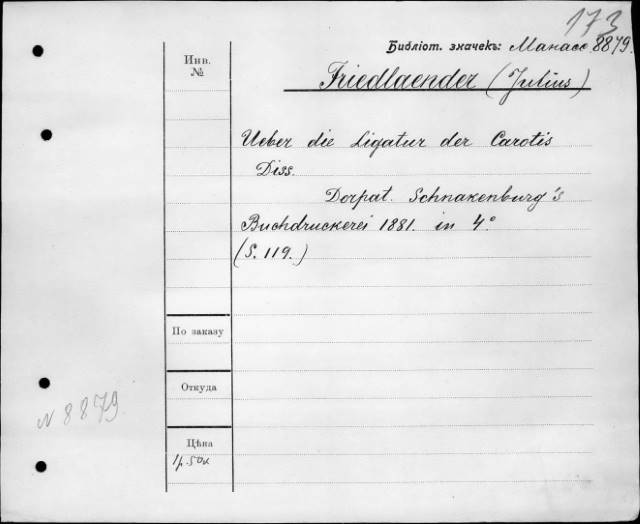 173
Библіот. значекъ: Манасс 8879.
Инв.
№
Friedlaender (Julius)
Ueber die Ligatur der Carotis
Diss.
Dorpat. Schnakenburg's
Buchdruckerei 1881. in 4°
(S. 119.)
По заказу
Откуда
N 8879
Цѣна
1р. 50к